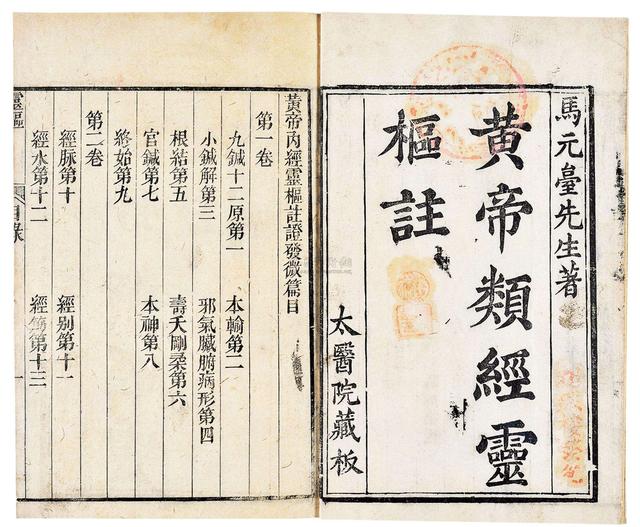 馬元臺先生著
黃帝類經靈
樞註
太醫院藏板
黃帝內經靈樞註證發微篇目
第一卷
九鍼十二原第一　本輸第二
小鍼解第三　邪氣臟腑病形第四
根結第五　壽夭剛柔第六
官鍼第七　本神第八
終始第九
第二卷
經脈第十　經别第十一
經水第十二　經筋第十三
靈樞　目錄